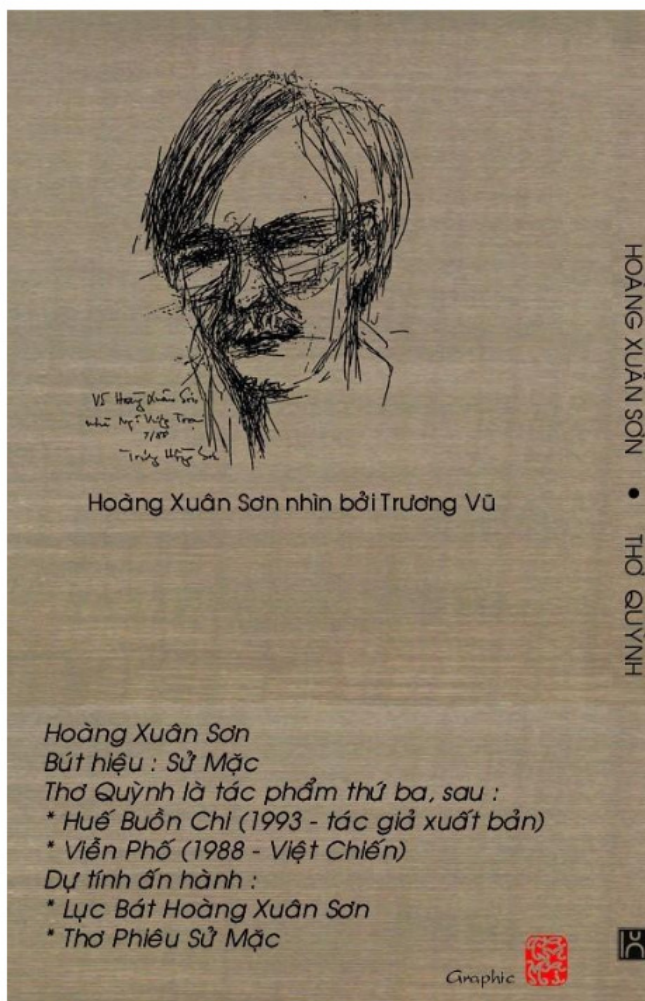 Hoàng Xuân Sơn nhìn bởi Trương Vũ
HOÀNG XUÂN SƠN • THƠ QUỲNH
Hoàng Xuân Sơn
Bút hiệu : Sử Mặc
Thơ Quỳnh là tác phẩm thứ ba, sau :
* Huế Buồn Chi (1993 - tác giả xuất bản)
* Viễn Phố (1988 - Việt Chiến)
Dự tính ấn hành :
* Lục Bát Hoàng Xuân Sơn
* Thơ Phiêu Sử Mặc
Graphic